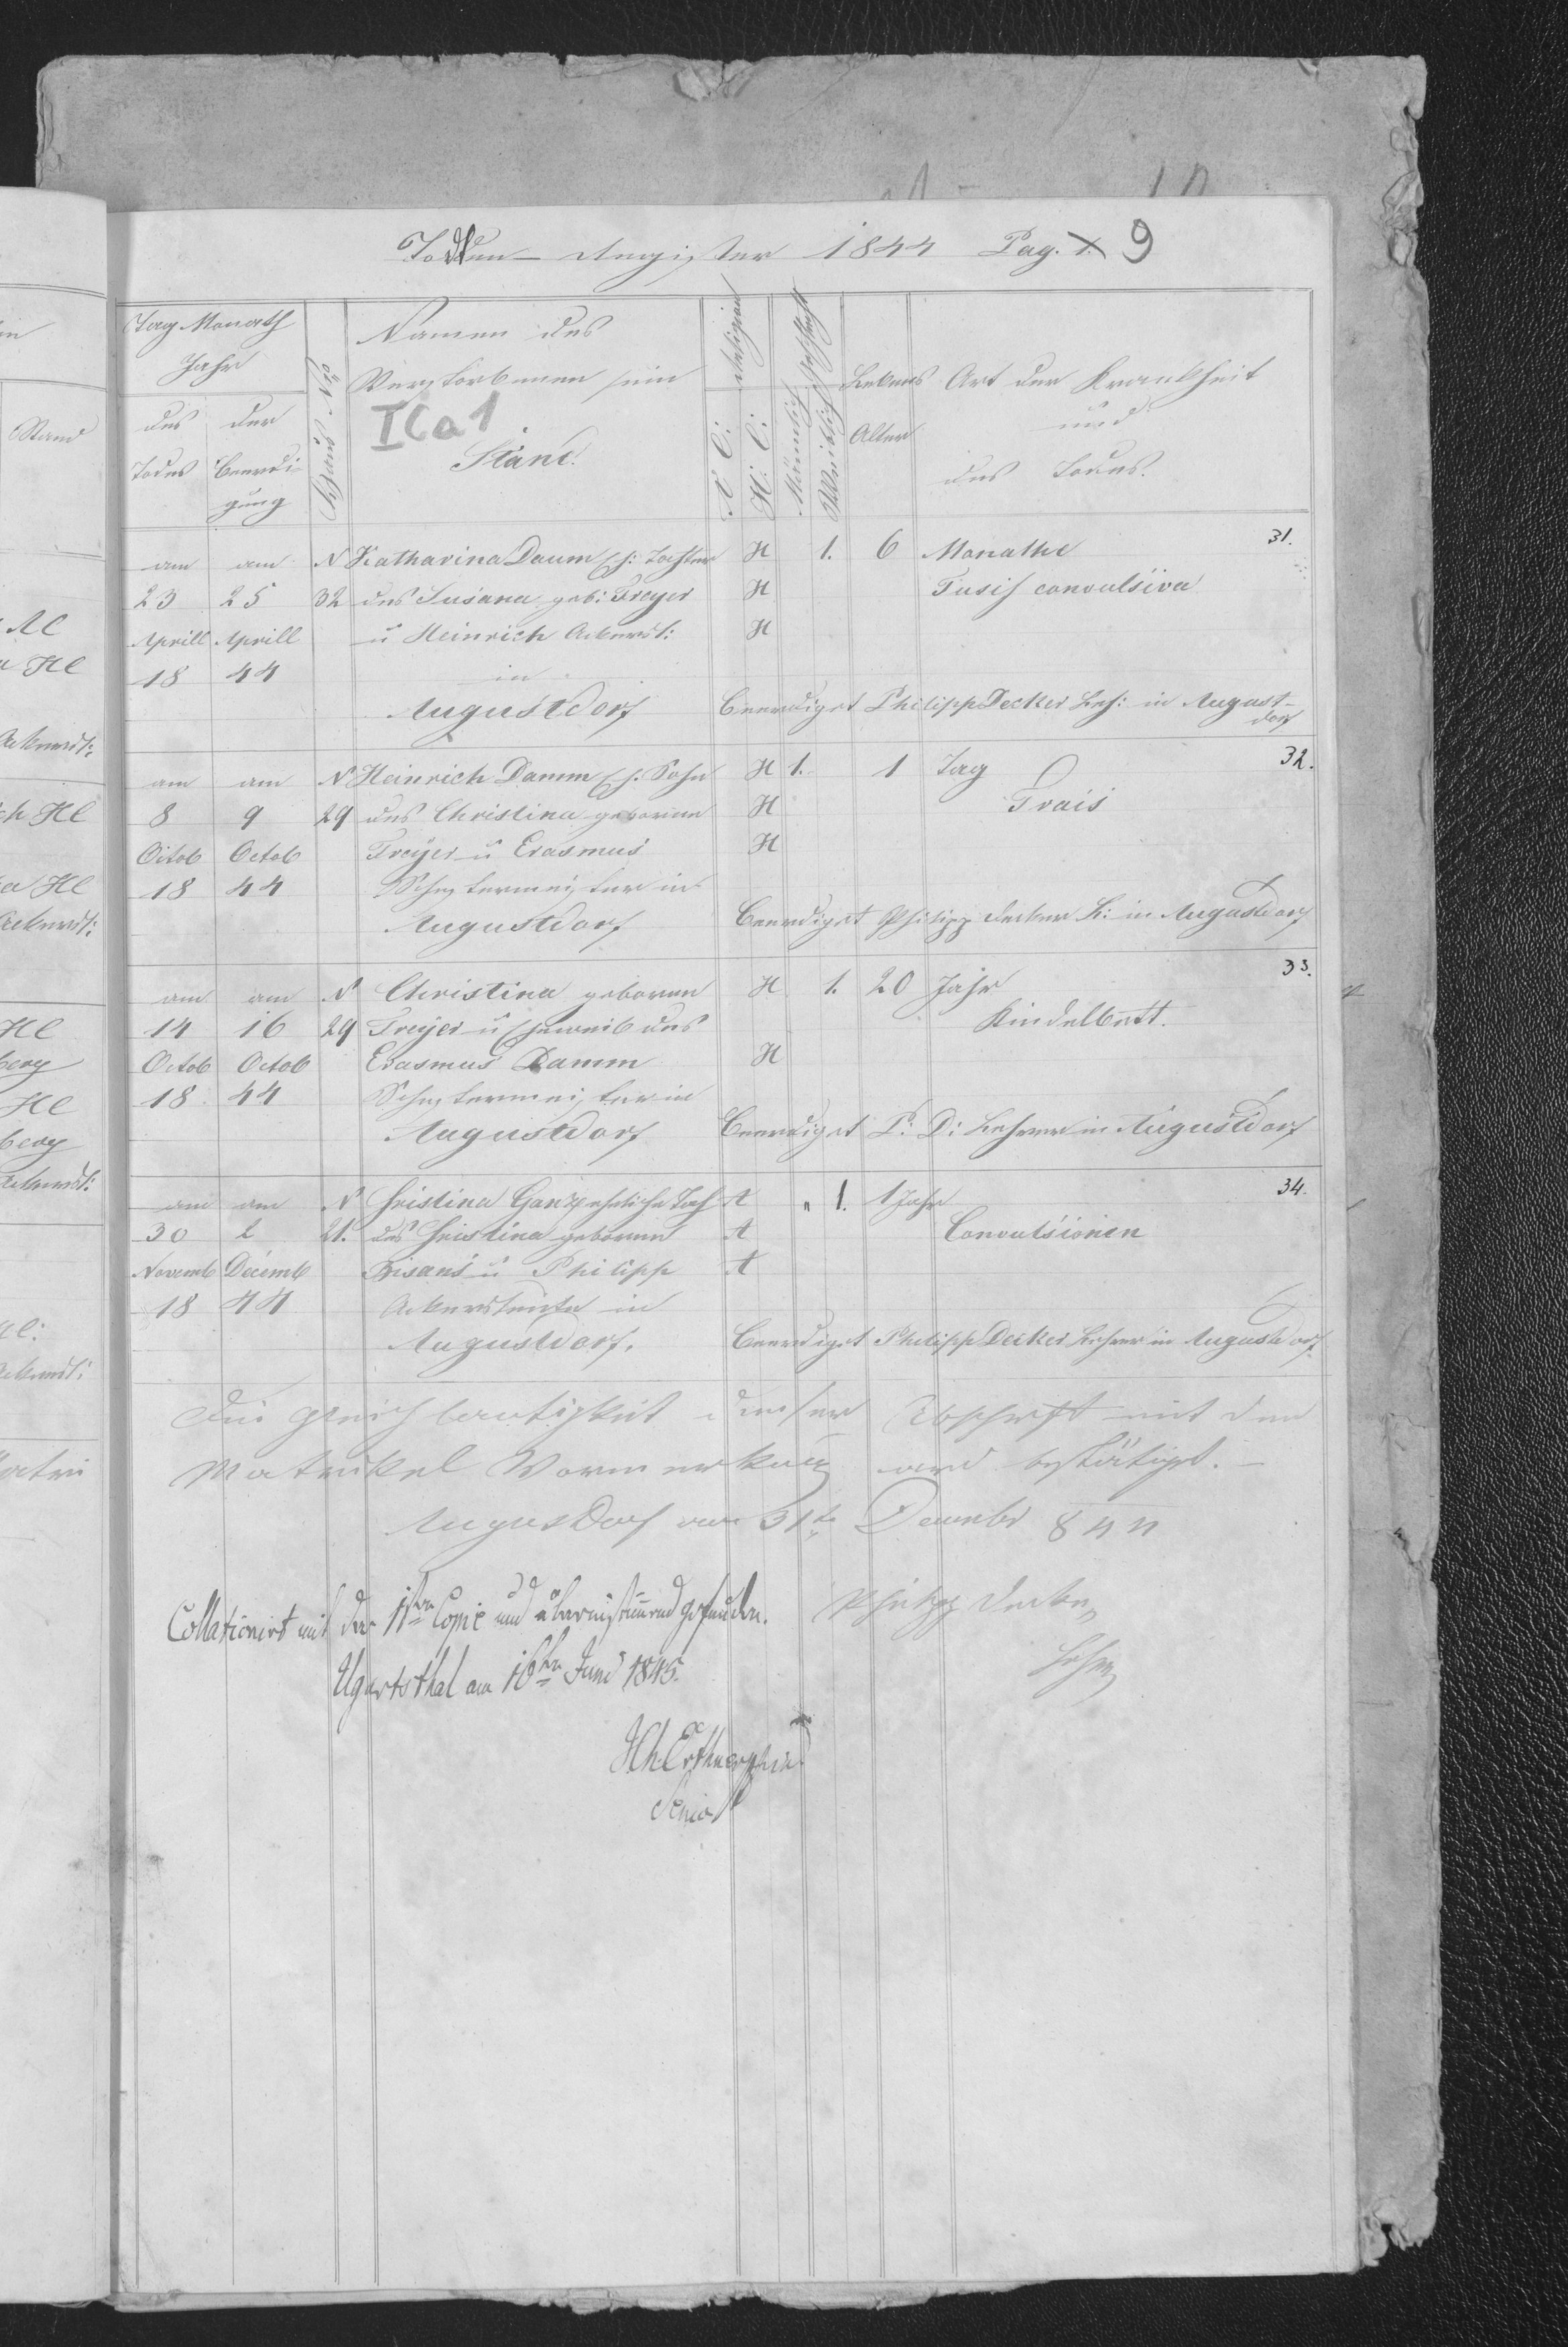 Todten-Register 1844 Pag. 1. 9
Tag Monath Jahr
des Todes
der Beerdigung
Haus No
Namen des
Verstorbenen sein
ICa1
Stand.
Religion
A. C:
H: C:
Geschlecht
Männlich
Weiblich
Lebens
Alter
Art der Krankheit
und
des Todes.
am am N Katharina Daum Eh: Tochter H 1. 6 Monathe 31.
23 25 32 des Susana geb: Freyer H Tusis convulsiva
Aprill Aprill u Heinrich Ackersl: H
18 44 in
Augustdorf Beerdiget Philipp Decker Leh: in August-
dorf
am am N Heinrich Damm Eh. Sohn H 1. 1 Tag 32.
8 9 29 des Christina geboren H Frais
Octob Octob Freyer u Erasmus H
18 44 Schustermeister in
Augustdorf Beerdiget Philipp Decker L: in Augustdorf
am am N Christina geboren H 1. 20 Jahr 33.
14 16 29 Freyer u Eheweib des Kindelbett.
Octob Octob Erasmus Damm H
18 44 Schustermeister in
Augustdorf Beerdiget P: D: Lehrer in Augustdorf
am am N Cristina Ganz eheliche Toch A " 1. 1 Jahr 34.
30 2 21. des Cristina geboren A Convulsionen
Novemb Decemb Bisans u Philipp A
18 44 Ackersleute in
Augustdorf. Beerdiget Philipp Decker Lehrer in Augustdorf
Die gleichlautigkeit dieser Abschrift mit den
Matrikel Vormerkung wird bestätiget.-
Augusdorf am 31te Decembr 844
Philipp Decker
Lehrer
Collationirt mit der 1sten Copie und übereinstimmend gefunden.
Ugartsthal am 16ten Juni 1845.
Senior